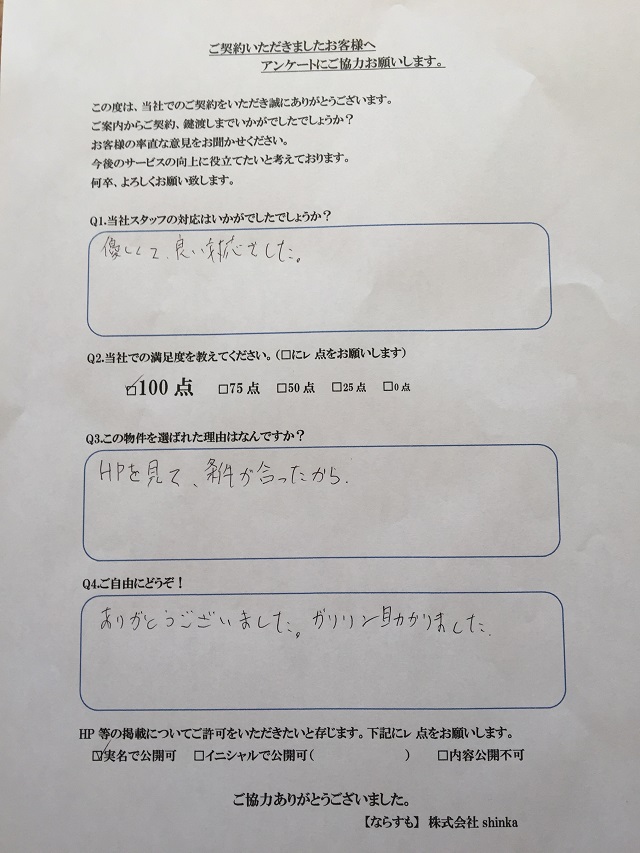 ご契約いただきましたお客様へ
アンケートにご協力お願いします。
この度は、当社でのご契約をいただき誠にありがとうございます。
ご案内からご契約、鍵渡しまでいかがでしたでしょうか？
お客様の率直な意見をお聞かせください。
今後のサービスの向上に役立てたいと考えております。
何卒、よろしくお願い致します。
Q1.当社スタッフの対応はいかがでしたでしょうか？
優しくて、良い対応でした。
Q2.当社での満足度を教えてください。（□にレ点をお願いします）
☑100点 □75点 □50点 □25点 □0点
Q3.この物件を選ばれた理由はなんですか？
HPを見て、条件が合ったから.
Q4.ご自由にどうぞ！
ありがとうございました。ガソリン助かりました.
HP 等の掲載についてご許可をいただきたいと存じます。下記にレ点をお願いします。
☑実名で公開可 □イニシャルで公開可（ ） □内容公開不可
ご協力ありがとうございました。
【ならすも】 株式会社 shinka